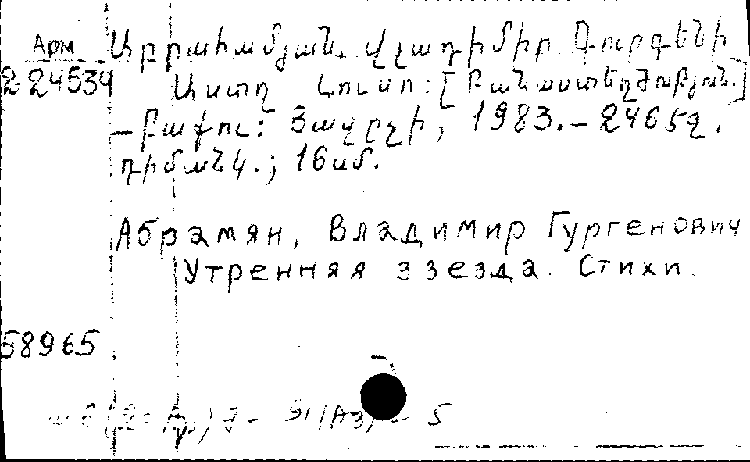 Արմ Աբրահամյան, Վլադիմիր Գուրգենի
2 24534 Աստղ Լուսո: [Բանաստեղծություն.]
— Բաքու: Յազըչի, 1983. — 246էջ.
դիմանկ.; 16սմ.
Абрамян, Владимир Гургенович
Утренняя звезда. Стихи.
58965